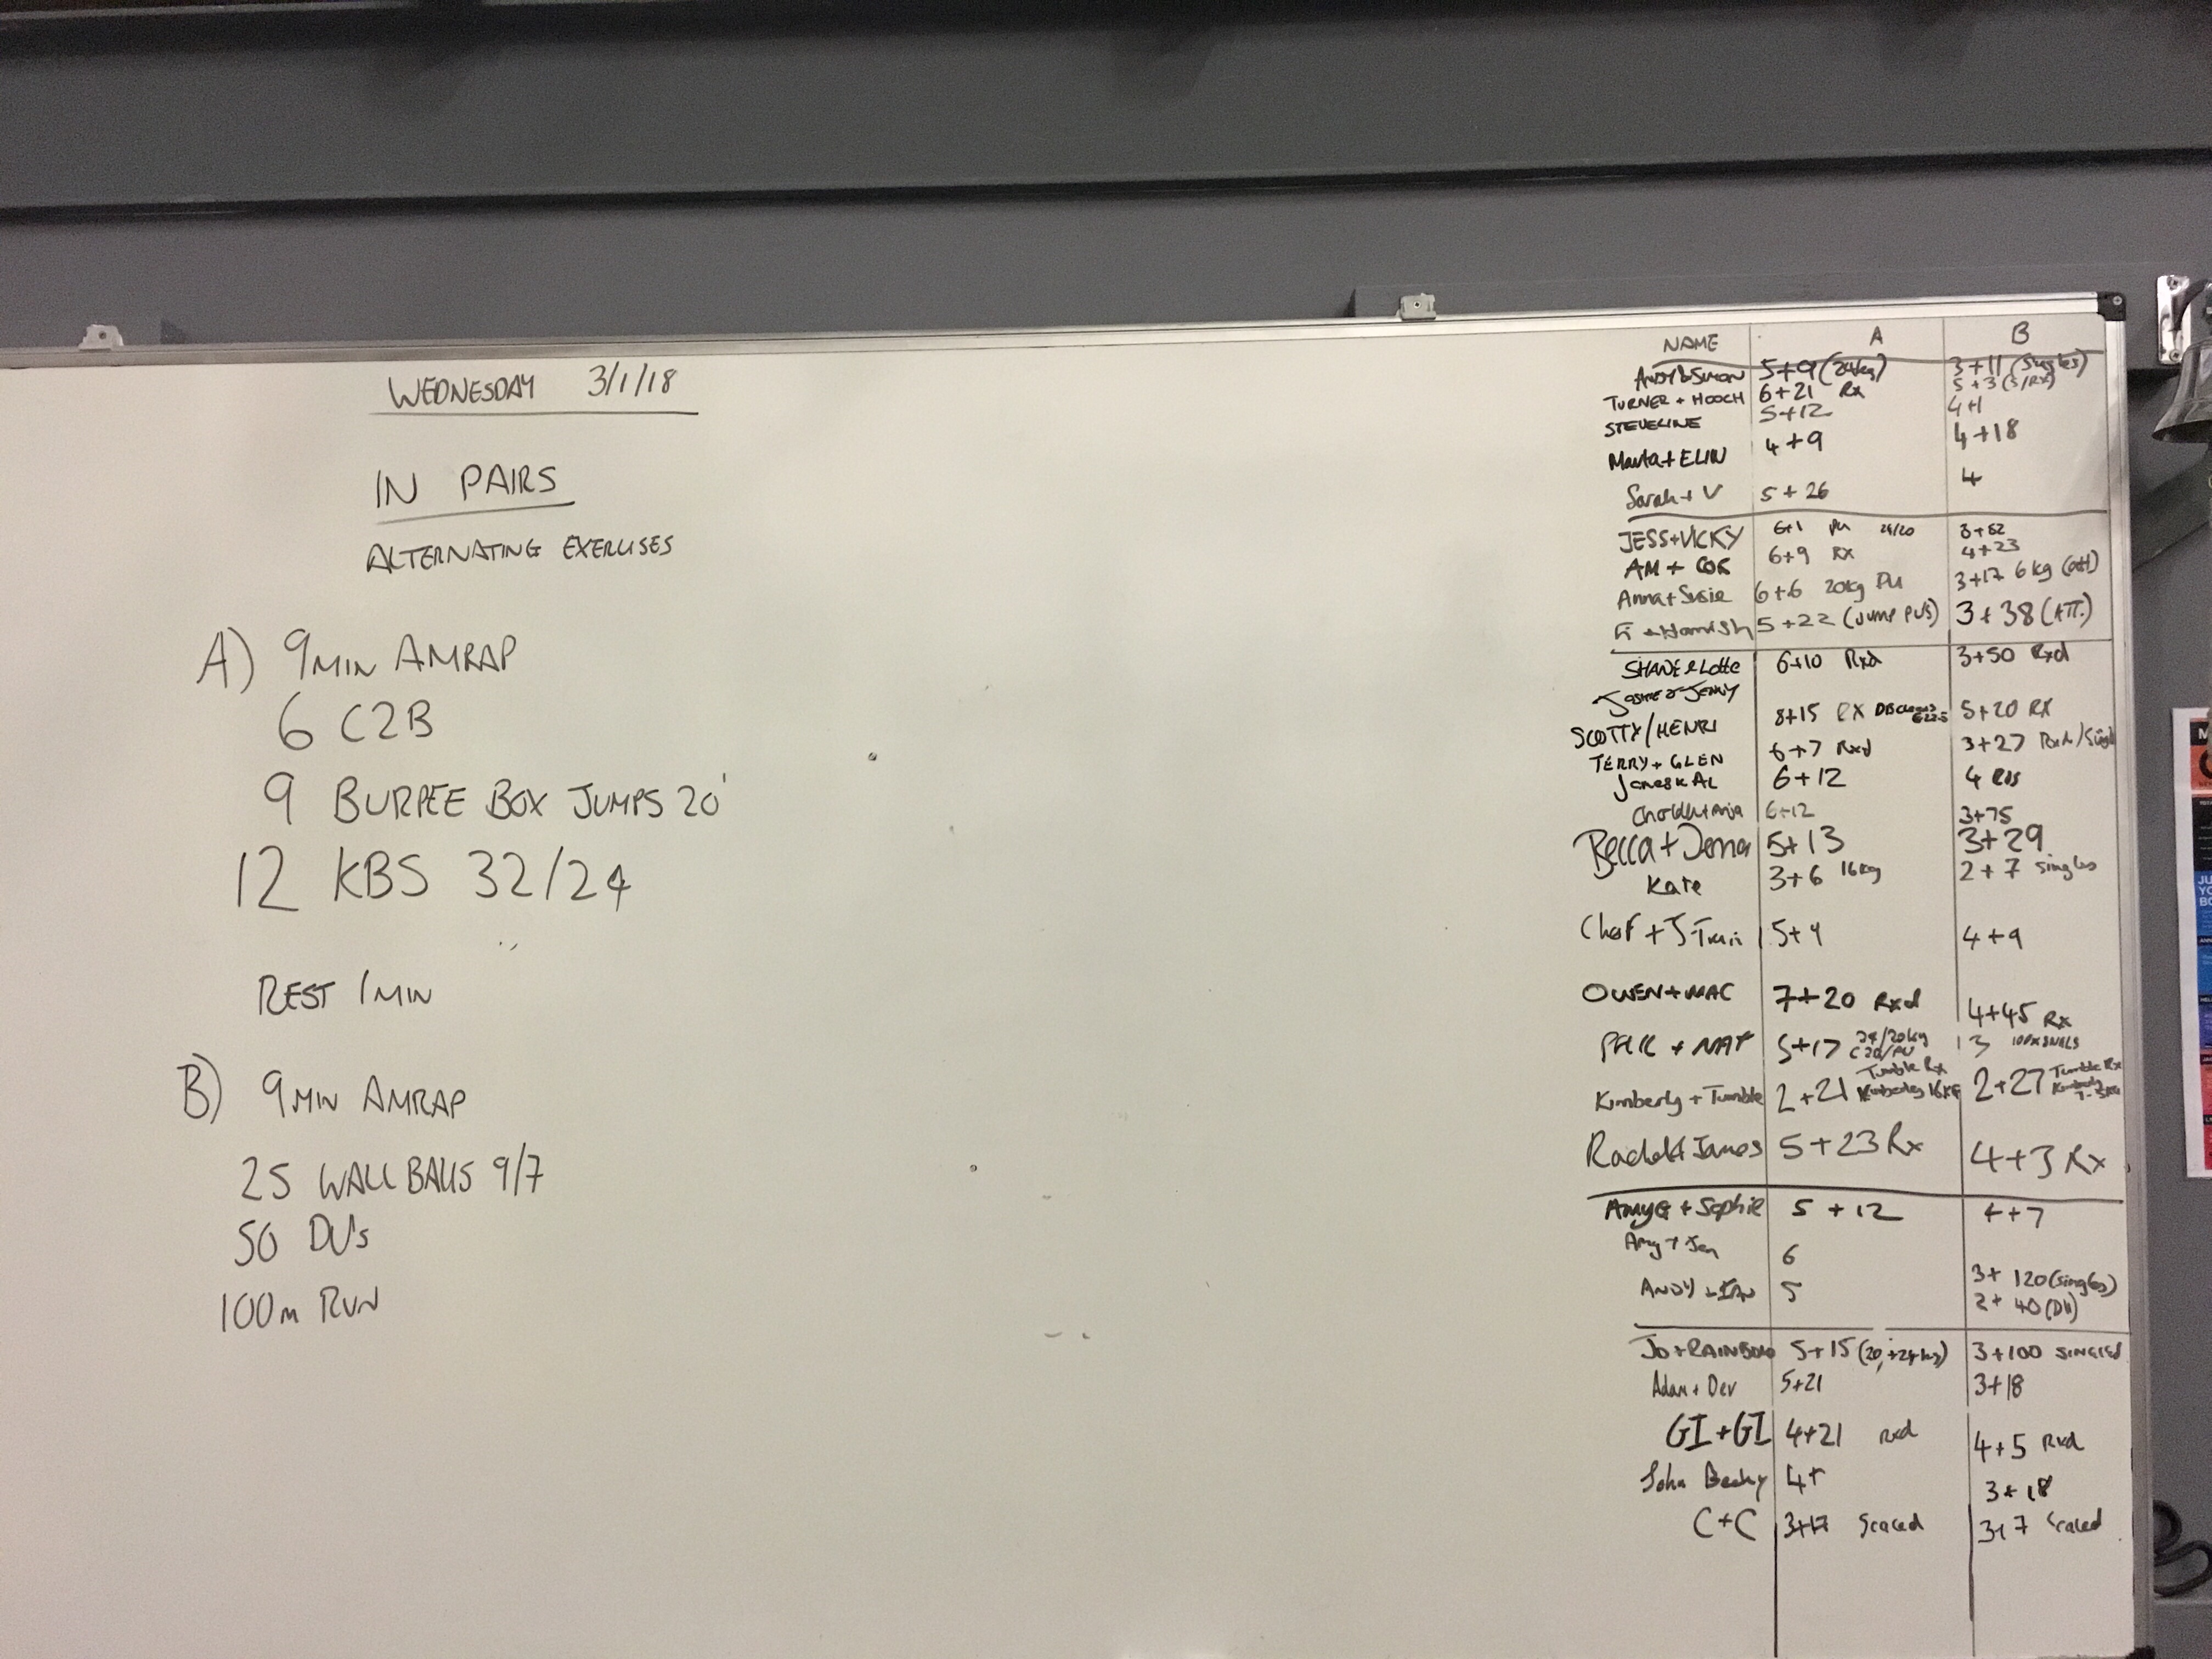 WEDNESDAY 3/1/18
IN PAIRS
ALTERNATING EXERCISES
A) 9MIN AMRAP
6 C2B
9 BURPEE BOX JUMPS 20'
12 KBS 32/24
REST 1MIN
B) 9MIN AMRAP
25 WALL BALLS 9/7
50 DU's
100m RUN
NAME A B
ANDY & SIMON 5+9 (24kg) 3+11 (Singles)
TURNER + HOOCH 6+21 Rx 5+3 (S/RX)
STEVELINE 5+12 4+1
Marta + ELIN 4+9 4+18
Sarah + V 5+26 4
JESS+VICKY 6+1 PU 24/20 3+62
AM + COR 6+9 RX 4+23
Anna+Susie 6+6 20kg PU 3+17 6kg (att)
Fi + Hamish 5+22 (JUMP PU'S) 3+38 (ATT.)
SHANE & Lotte 6+10 Rxd 3+50 Rxd
JENNY
SCOTTY/HENRI 8+15 RX 5+20 RX
TERRY + GLEN 6+7 Rxd 3+27 Rxd/Singl
James & AL 6+12 4 RDS
6+12 3+75
Becca+Jenna 5+13 3+29
Kate 3+6 16kg 2+7 singles
Chef + J-Train 5+9 4+9
OWEN+MAC 7+20 Rxd 4+45 Rx
+ NAT 5+17 24/20kg 3
Kimberly + Tumble 2+21 Tumble Rx Kimberley 16KG 2+27 Tumble Rx
Rachel+James 5+23 Rx 4+3 Rx
AmyG + Sophie 5+12 4+7
Amy + Jen 6
ANDY + IAN 5 3+ 120 (singles)
2+ 40 (DU)
JO+RAINBOW 5+15 (20,+24kg) 3+100 SINGLES
Adam + Dev 5+21 3+18
GI+GI 4+21 rxd 4+5 Rxd
John Becky 4+ 3+18
C+C 3+17 Scaled 3+7 Scaled